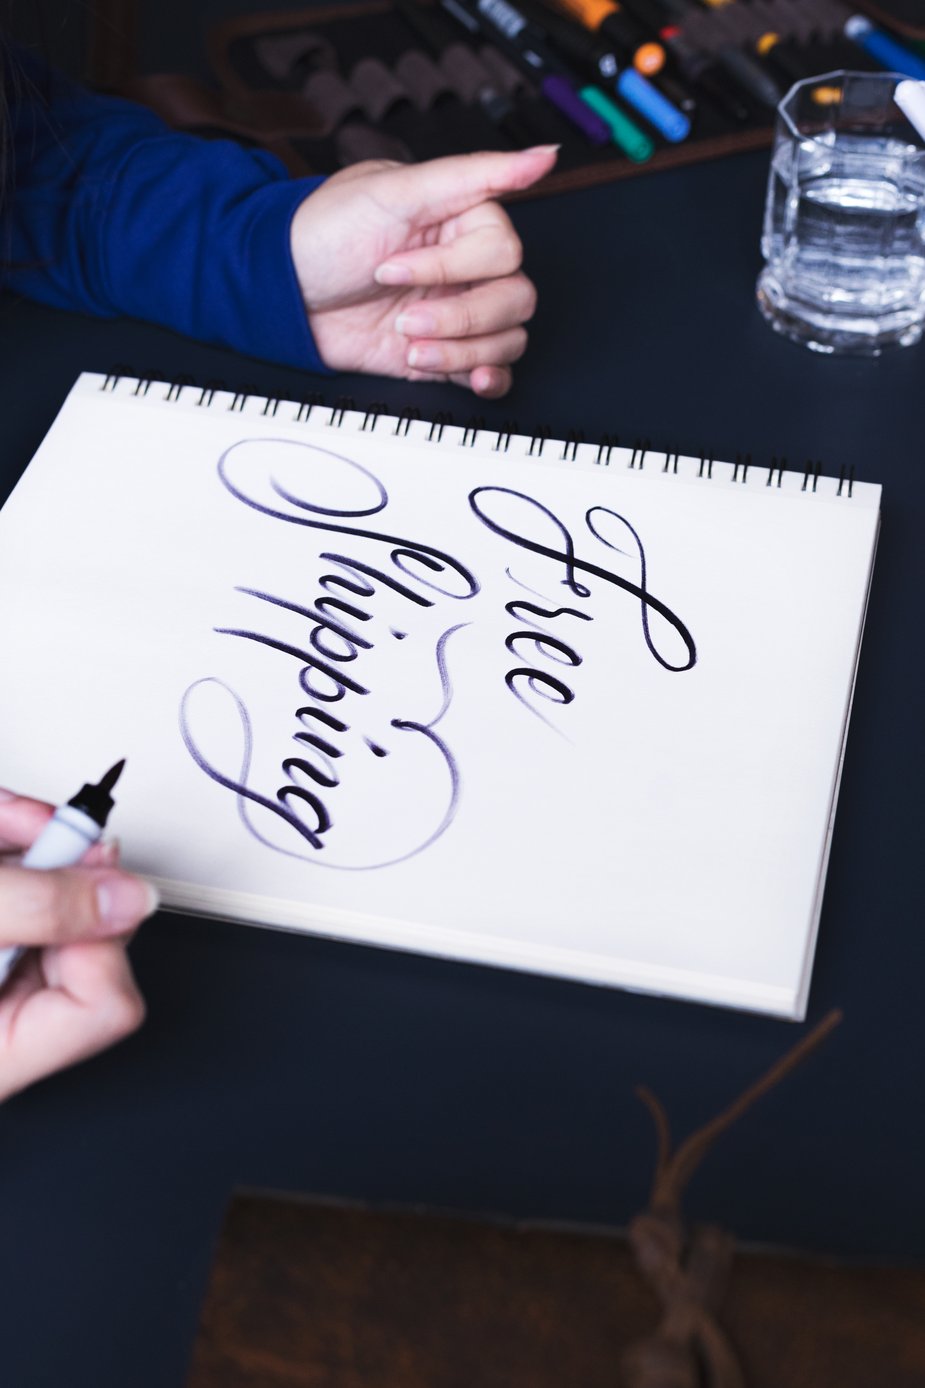 Free
Shipping